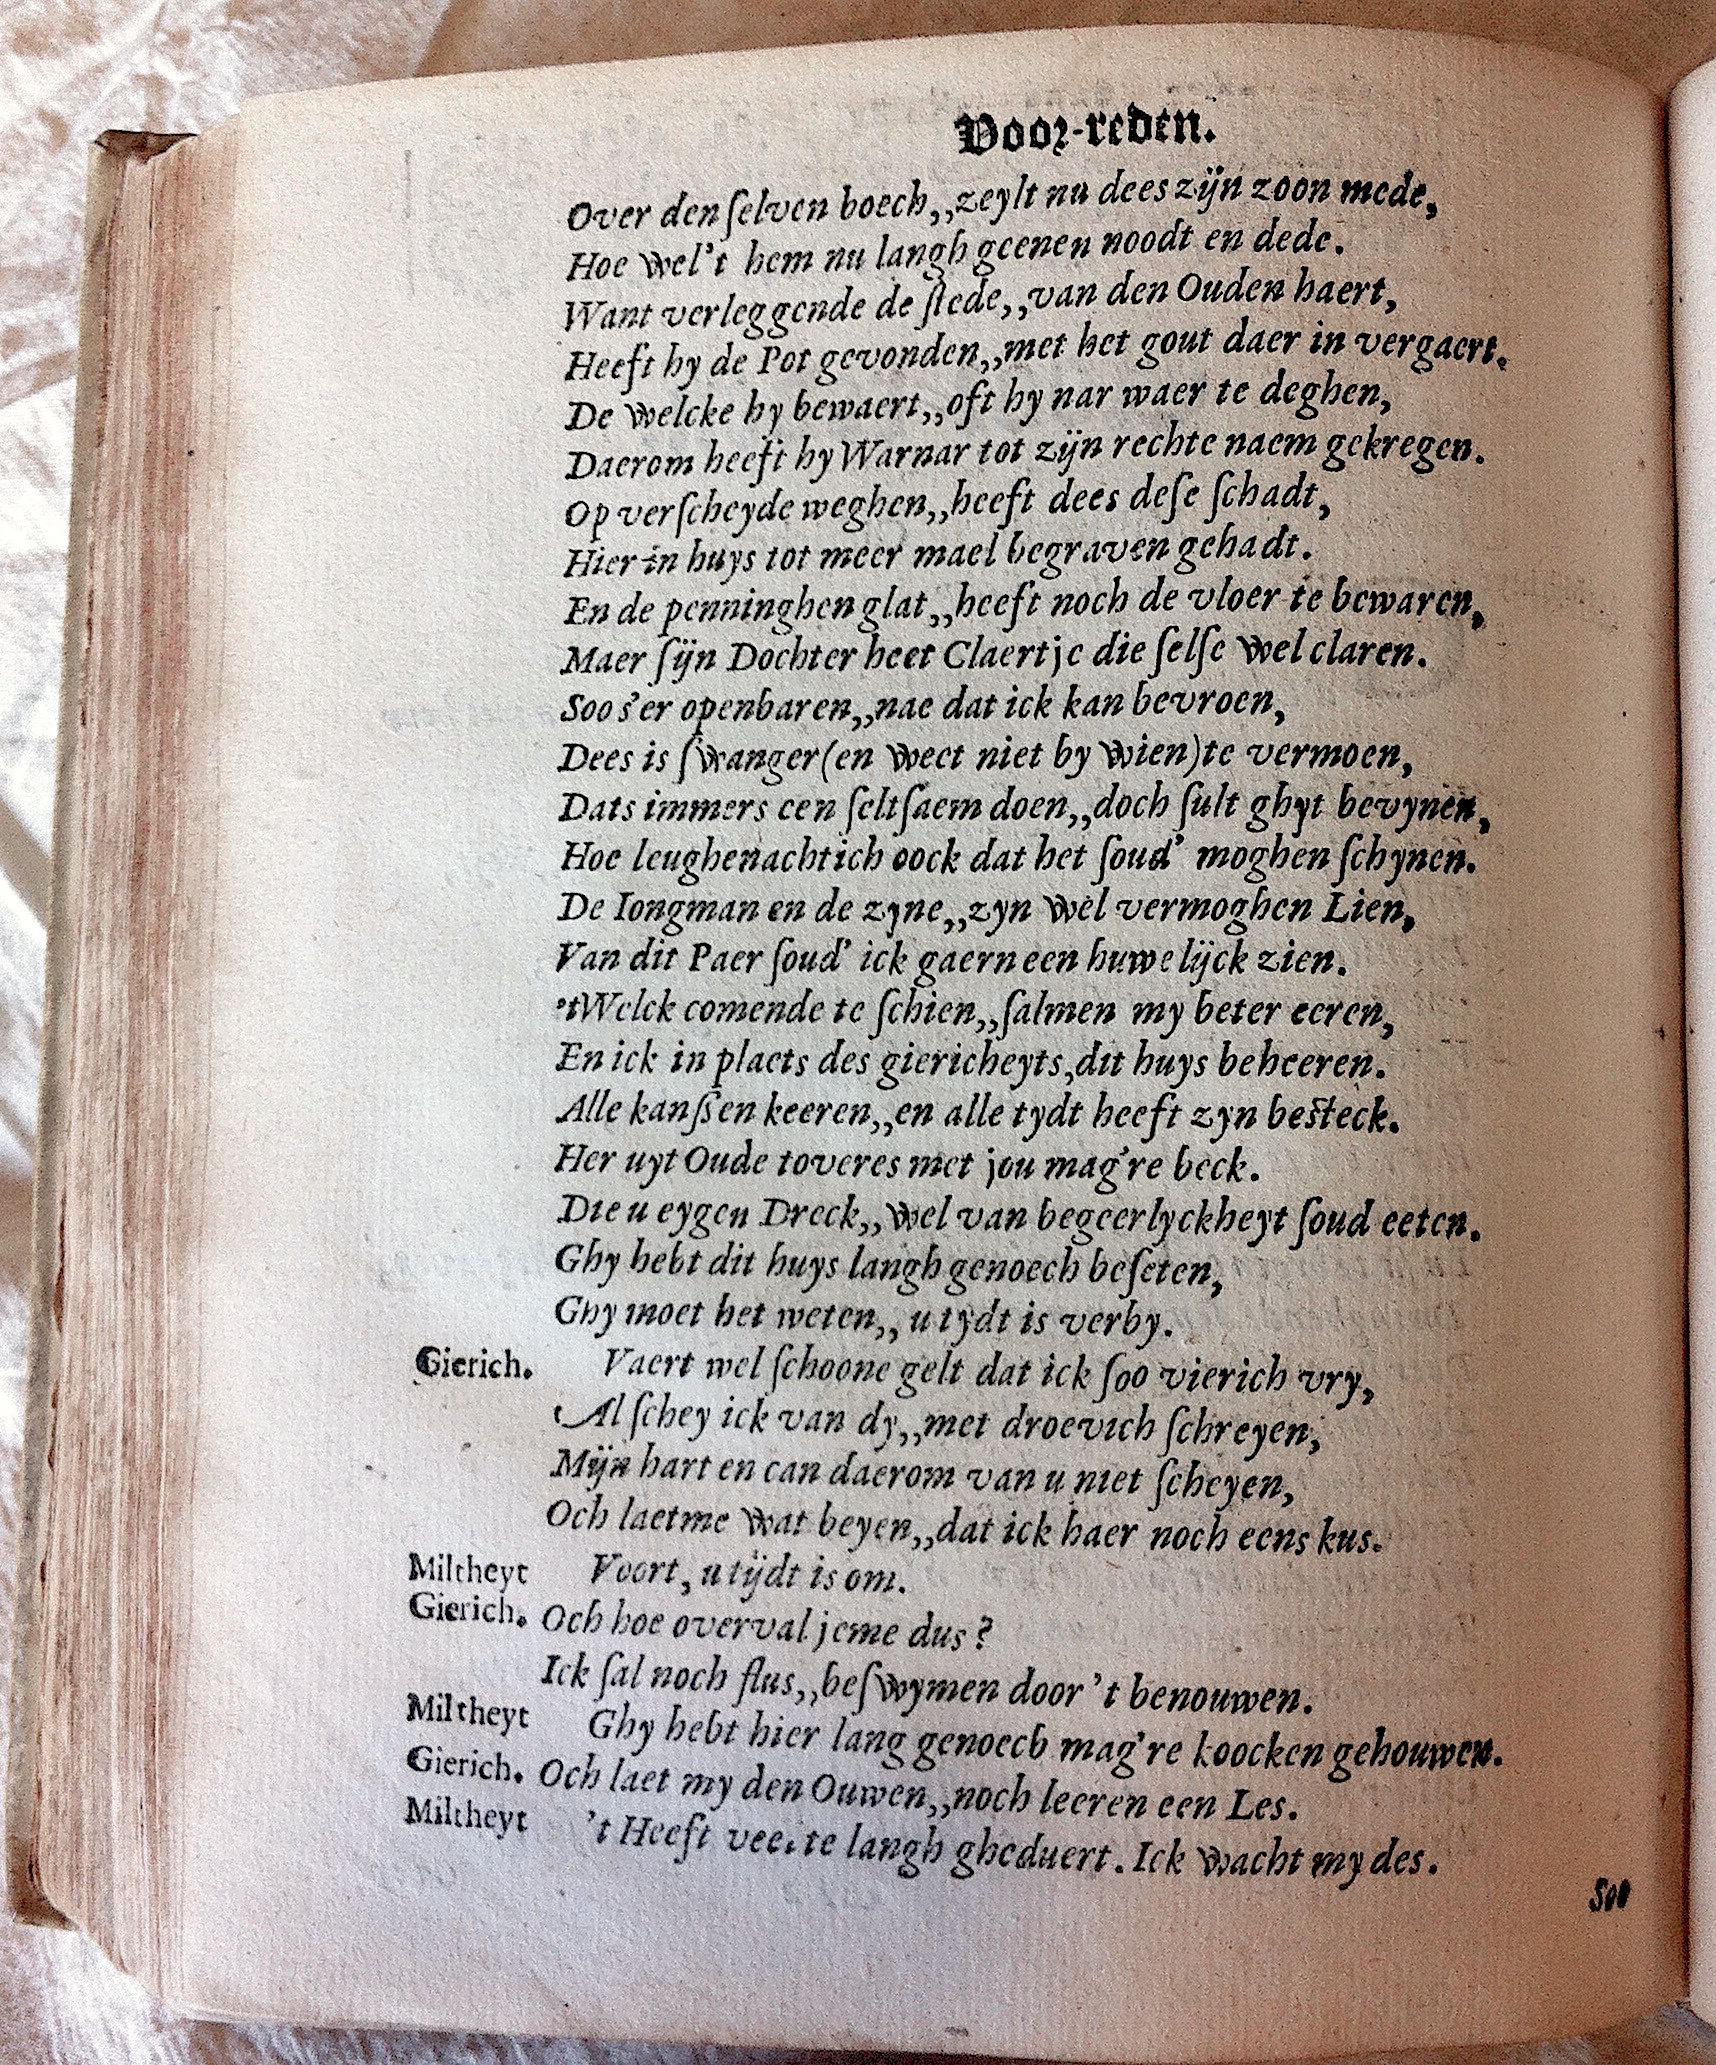 Voor-reden.
Over den ſelven boech,,zeylt nu dees zijn zoon mede,
Hoe wel't hem nu langh geenen noodt en dede.
Want verleggende de ſtede,,van den Ouden haert,
Heeft hy de Pot gevonden,,met het gout daer in vergaert.
De welcke hy bewaert,,oft hy nar waer te deghen,
Daerom heeft hy Warnar tot zijn rechte naem gekregen.
Op verſcheyde weghen,,heeft dees deſe ſchadt,
Hier in huys tot meer mael begraven gehadt.
En de penninghen glat,,heeft noch de vloer te bewaren,
Maer ſijn Dochter heet Claertje die ſelſe wel claren.
Soo s'er openbaren,,nae dat ick kan bevroen,
Dees is ſwanger(en weet niet by wien)te vermoen,
Dats immers een ſeltſaem doen,,doch ſult ghyt bevynen,
Hoe leughenachtich oock dat het ſoud' moghen ſchynen.
De Iongman en de zyne,,zyn wel vermoghen Lien,
Van dit Paer ſoud' ick gaern een huwelijck zien.
'tWelck comende te ſchien,,ſalmen my beter eeren,
En ick in plaets des giericheyts,dit huys beheeren.
Alle kanſſen keeren,,en alle tydt heeft zyn beſteck.
Her uyt Oude toveres met jou mag're beck.
Die u eygen Dreck,,wel van begeerlyckheyt ſoud eeten.
Ghy hebt dit huys langh genoech beſeten,
Ghy moet het weten,, u tydt is verby.
Gierich. Vaert wel ſchoone gelt dat ick ſoo vierich vry,
Al ſchey ick van dy,,met droevich ſchreyen,
Mijn hart en can daerom van u niet ſcheyen,
Och laetme wat beyen,,dat ick haer noch eens kus.
Miltheyt Voort, u tijdt is om.
Gierich. Och hoe overval jeme dus?
Ick ſal noch flus,,beſwymen door 't benouwen.
Miltheyt Ghy hebt hier lang genoech mag're koocken gehouwen.
Gierich. Och laet my den Ouwen,,noch leeren een Les.
Miltheyt 't Heeft veel te langh gheduert. Ick wacht my des.
Soo